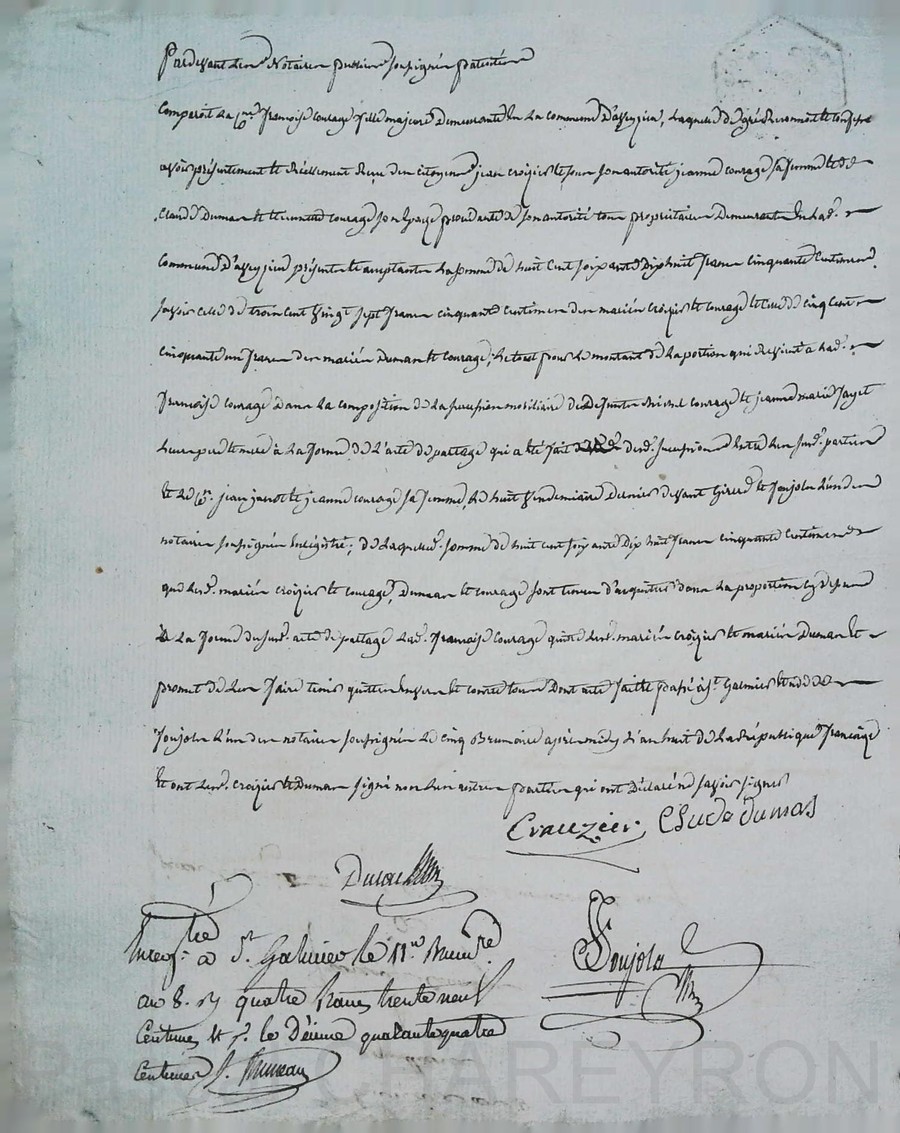 Pardevant les Notaires publics soussignés patentés
Comparoit La Cne françoise courage fille majeure Demeurante En La commune D'aveyzieu, Laquelle de gré Reconnoit et confesse
avoir présentement et Réellement Reçu des citoyens jean croizier et sous son autorité jeanne courage sa femme et de
Claude Dumas et courage son Epouse procédante de son autorité tous propriétaires Demeurants En Lad.
commune D'aveyzieu présents et acceptants La somme de huit cent soixante Dix huit francs cinquante Centimes
savoir celle de trois cent vingt sept francs cinquante Centimes des mariés croizier et courage et celle de cinq cent
cinquante un francs des mariés Dumas et courage, Le tout pour Le montant de La portion qui Revient à Lad.
françoise courage Dans La composition de La succession mobiliaire de Defunts michel courage et jeanne marie fayet
Leurs père et mère à La forme de L'acte de partage qui a été fait desd. successions Entre Les susd. parties
et Le Cn. jean et jeanne courage sa femme, Le huit Vendemiaire Dernier devant Girerd et Joujols L'un des
notaires soussignés Enregistré; de Laquelle somme de huit cent soixante Dix huit francs cinquante Centimes
que Lesd. mariés croizier et courage, Dumas et courage sont tenus d'acquitter dans La proportion cy dessus
à La forme du susd. acte de partage Lad. françoise courage quitte Lesd. mariés croizier et mariés Dumas et
promet de Les faire tenir quittes Envers et contre tous Dont acte fait et passé à St. Galmier Etude de
Joujols L'un des notaires soussignés Le cinq Brumaire après midy L'an huit de La République française
Et ont Lesd. croizier et Dumas signé non Les autres parties qui ont Déclaré ne savoir signer
Crauzier Clude dumas
Joujols
Enregtré à St Galmier le 11 Brumre
an 8. R quatre francs trente neuf
Centimes et p. le Décime quarante quatre
Centimes
CHAREYRON